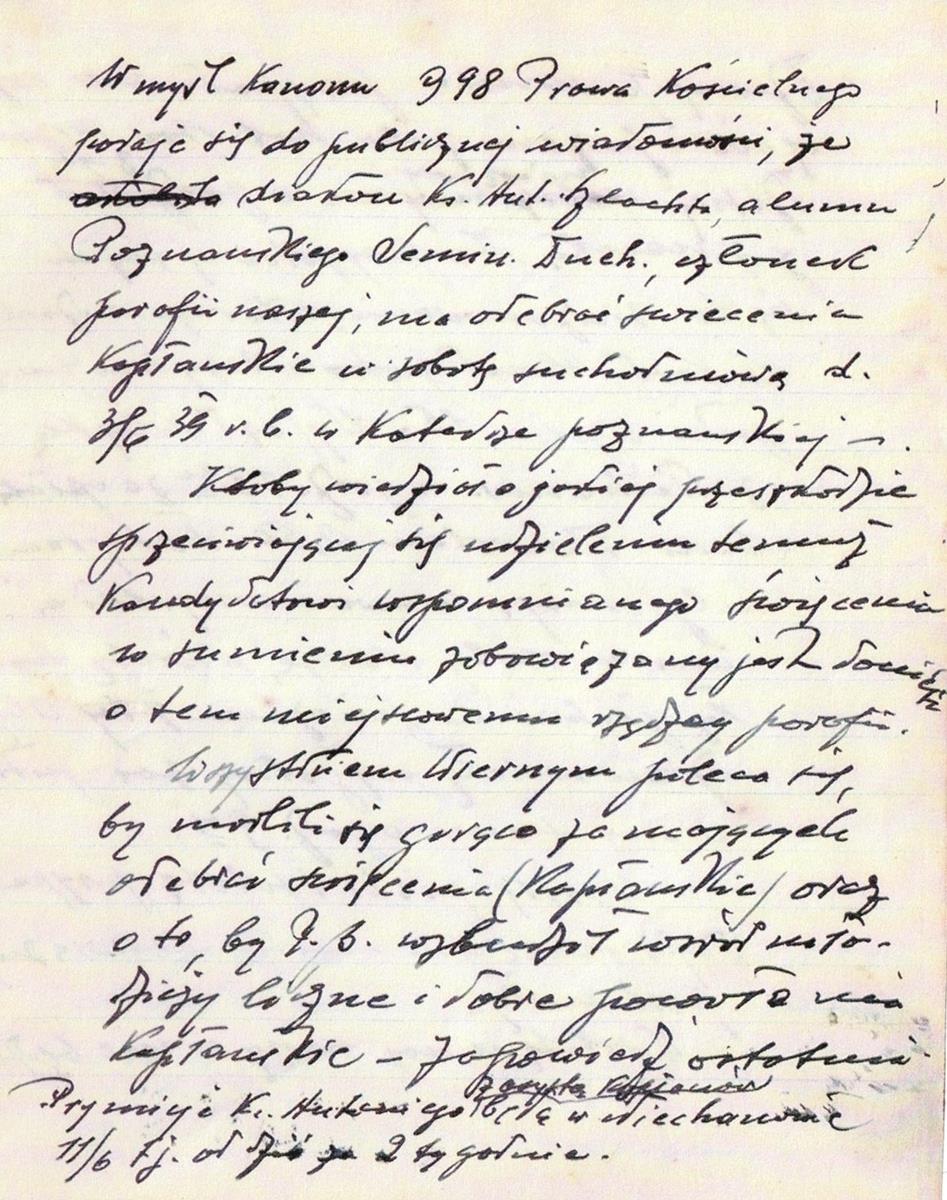 W myśl Kanonu 998 Prawa Kościelnego
podaje się do publicznej wiadomości, że
diakon Ks. Ant. Szlachta, alumn
Poznańskiego Semin. Duch., członek
parafii naszej, ma odebrać święcenia
Kapłańskie w sobotę suchodniową d.
3/6 39 r. b. w Katedrze poznańskiej –.
Ktoby wiedział o jakiej przeszkodzie
sprzeciwiającej się udzieleniu temuż
Kandydatowi wspomnianego święcenia
w sumieniu zobowiązany jest donieść
o tem miejscowemu rządzcy parafii.
Wszystkiem Wiernym poleca się,
by modlili się gorąco za mających
odebrać święcenia (Kapłańskie) oraz
o to, by P. B. wzbudzał wśród mło-
dzieży liczne i dobre powołania
Kapłańskie – zapowiedź ostatnia
Prymicje Ks. Antoniego będą w Niechanowie
11/6 tj. od dziś za 2 tygodnie.